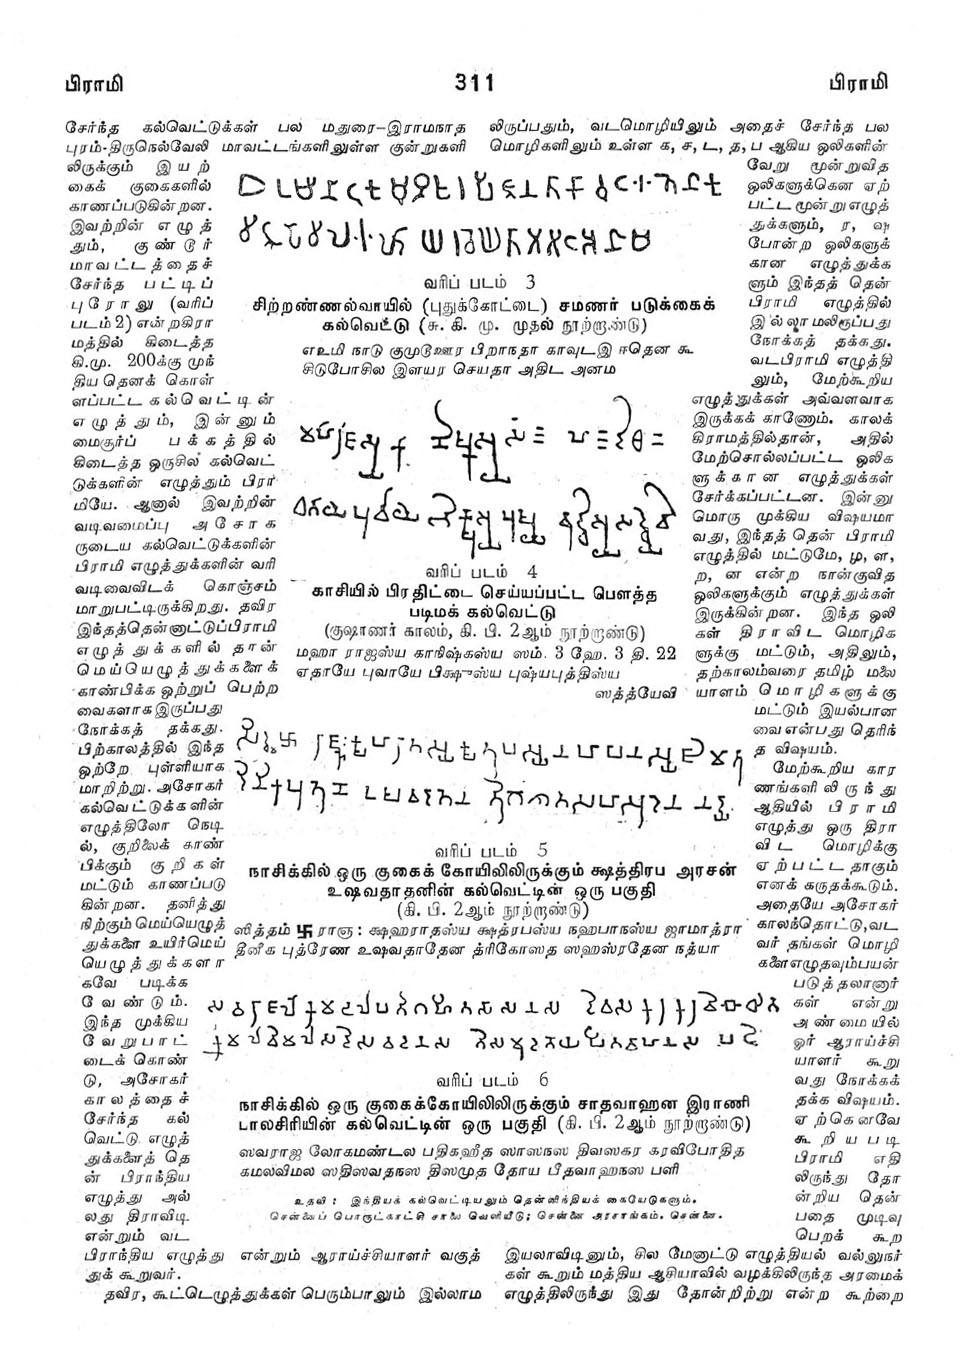 பிராமி 311 பிராமி
சேர்ந்த கல்வெட்டுக்கள் பல மதுரை-இராமநாத
புரம்-திருநெல்வேலி மாவட்டங்களிலுள்ள குன்றுகளி
லிருக்கும் இயற்
கைக் குகைகளில்
காணப்படுகின்றன.
இவற்றின் எழுத்
தும், குண்டூர்
மாவட்டத்தைச்
சேர்ந்த பட்டிப்
புரோலு (வரிப்
படம் 2) என்றகிரா
மத்தில் கிடைத்த
கி.மு. 200க்கு முந்
தியதெனக் கொள்
ளப்பட்ட கல்வெட்டின்
எழுத்தும், இன்னும்
மைசூர்ப் பக்கத்தில்
கிடைத்த ஒருசில கல்வெட்
டுக்களின் எழுத்தும் பிரா
மியே. ஆனால் இவற்றின்
வடிவமைப்பு அசோக
ருடைய கல்வெட்டுக்களின்
பிராமி எழுத்துக்களின் வரி
வடிவைவிடக் கொஞ்சம்
மாறுபட்டிருக்கிறது. தவிர
இந்தத்தென்னாட்டுப்பிராமி
எழுத்துக்களில் தான்
மெய்யெழுத்துக்களைக்
காண்பிக்க ஒற்றுப் பெற்ற
வைகளாக இருப்பது
நோக்கத் தக்கது.
பிற்காலத்தில் இந்த
ஒற்றே புள்ளியாக
மாறிற்று. அசோகர்
கல்வெட்டுக்களின்
எழுத்திலோ நெடி
ல், குறிலைக் காண்
பிக்கும் குறிகள்
மட்டும் காணப்படு
கின்றன. தனித்து
நிற்கும் மெய்யெழுத்
துக்களை உயிர்மெய்
யெழுத்துக்களா
கவே படிக்க
வேண்டும்.
இந்த முக்கிய
வேறுபாட்
டைக் கொண்
டு, அசோகர்
காலத்தைச்
சேர்ந்த கல்
வெட்டு எழுத்
துக்களைத் தெ
ன் பிராந்திய
எழுத்து அல்
லது திராவிடி
என்றும் வட
பிராந்திய எழுத்து என்றும் ஆராய்ச்சியாளர் வகுத்
துக் கூறுவர்.
தவிர, கூட்டெழுத்துக்கள் பெரும்பாலும் இல்லாம
வரிப் படம் 3
சிற்றண்ணல்வாயில் (புதுக்கோட்டை) சமணர் படுக்கைக்
கல்வெட்டு (சு. கி. மு. முதல் நூற்றாண்டு)
எஉமி நாடு குமுடூஊர பிறாநதா காவுடஇ ஈதென கூ
சிடுபோசில இளயர செயதா அதிட அனம
வரிப் படம் 4
காசியில் பிரதிட்டை செய்யப்பட்ட பௌத்த
படிமக் கல்வெட்டு
(குஷாணர் காலம், கி. பி. 2ஆம் நூற்றாண்டு)
மஹா ராஜஸ்ய காநிஷ்கஸ்ய ஸம். 3 ஹே. 3 தி. 22
ஏதாயே புவாயே பிக்ஷுஸ்ய புஷ்யபுத்திஸ்ய
ஸத்த்யேவி
வரிப் படம் 5
நாசிக்கில் ஒரு குகைக் கோயிலிலிருக்கும் க்ஷத்திரப அரசன்
உஷவதாதனின் கல்வெட்டின் ஒரு பகுதி
(கி. பி. 2ஆம் நூற்றாண்டு)
ஸித்தம் 卐 ராஞ: க்ஷஹராதஸ்ய க்ஷத்ரபஸ்ய நஹபாநஸ்ய ஜாமாத்ரா
தீனீக புத்ரேண உஷவதாதேன த்ரிகோஸத ஸஹஸ்ரதேன நத்யா
வரிப் படம் 6
நாசிக்கில் ஒரு குகைக்கோயிலிலிருக்கும் சாதவாஹன இராணி
பாலசிரியின் கல்வெட்டின் ஒரு பகுதி (கி. பி. 2ஆம் நூற்றாண்டு)
ஸவராஜ லோகமண்டல பதிகஹீத ஸாஸநஸ திவஸகர கரவிபோதித
கமலவிமல ஸதிஸவதநஸ திஸமுத தோய பீதவாஹநஸ பளி
உதவி : இந்தியக் கல்வெட்டியலும் தென்னிந்தியக் கையேடுகளும்.
சென்னைப் பொருட்காட்சி சாலை வெளியீடு; சென்னை அரசாங்கம். சென்னை.
லிருப்பதும், வடமொழியிலும் அதைச் சேர்ந்த பல
மொழிகளிலும் உள்ள க, ச, ட, த, ப ஆகிய ஒலிகளின்
வேறு மூன்றுவித
ஒலிகளுக்கென ஏற்
பட்ட மூன்று எழுத்
துக்களும், ர, ஷ
போன்ற ஒலிகளுக்
கான எழுத்துக்க
ளும் இந்தத் தென்
பிராமி எழுத்தில்
இல்லாமலிருப்பது
நோக்கத் தக்கது.
வடபிராமி எழுத்தி
லும், மேற்கூறிய
எழுத்துக்கள் அவ்வளவாக
இருக்கக் காணோம். காலக்
கிராமத்தில்தான், அதில்
மேற்சொல்லப்பட்ட ஒலிக
ளுக்கான எழுத்துக்கள்
சேர்க்கப்பட்டன. இன்னு
மொரு முக்கிய விஷயமா
வது, இந்தத் தென் பிராமி
எழுத்தில் மட்டுமே, ழ, ள,
ற, ன என்ற நான்குவித
ஒலிகளுக்கும் எழுத்துக்கள்
இருக்கின்றன. இந்த ஒலி
கள் திராவிட மொழிக
ளுக்கு மட்டும், அதிலும்,
தற்காலம்வரை தமிழ் மலை
யாளம் மொழிகளுக்கு
மட்டும் இயல்பான
வை என்பது தெரிந்
த விஷயம்.
மேற்கூறிய கார
ணங்களிலிருந்து
ஆதியில் பிராமி
எழுத்து ஒரு திரா
விட மொழிக்கு
ஏற்பட்டதாகும்
எனக் கருதக்கூடும்.
அதையே அசோகர்
காலந்தொட்டு, வட
வர் தங்கள் மொழி
களை எழுதவும்பயன்
படுத்தலானார்
கள் என்று
அண்மையில்
ஓர் ஆராய்ச்சி
யாளர் கூறு
வது நோக்கக்
தக்க விஷயம்.
ஏற்கெனவே
கூறியபடி
பிராமி எதி
லிருந்து தோ
ன்றிய தென்
பதை முடிவு
பெறக் கூற
இயலாவிடினும், சில மேனாட்டு எழுத்தியல் வல்லுநர்
கள் கூறும் மத்திய ஆசியாவில் வழக்கிலிருந்த அரமைக்
எழுத்திலிருந்து இது தோன்றிற்று என்ற கூற்றை